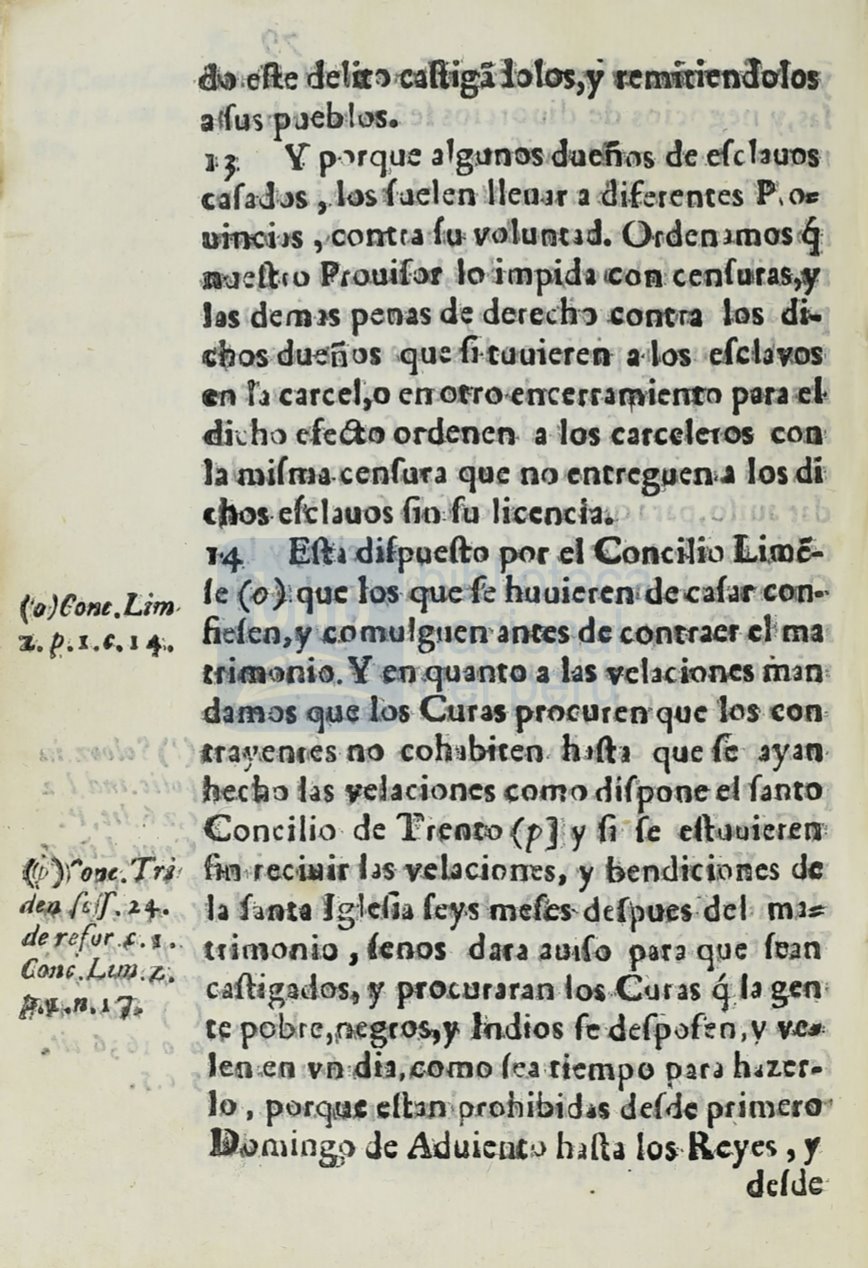 do este delito castigãlolos,y remitiendolos
a sus pueblos.
13 Y porque algunos dueños de esclauos
casados, los suelen lleuar a diferentes Pro-
uincias, contra su voluntad. Ordenamos q̃
nuestro Prouisor lo impida con censuras,y
las demas penas de derecho contra los di-
chos dueños que si tuuieren a los esclavos
en la carcel,o en otro encerramiento para el
dicho efecto ordenen a los carceleros con
la misma censura que no entreguen a los di
chos esclauos sin su licencia.
14 Esta dispuesto por el Concilio Limẽ-
se (o) que los que se huuieren de casar con-
fiesen,y comulguen antes de contraer el ma
trimonio. Y en quanto a las velaciones man
damos que los Curas procuren que los con
trayentes no cohabiten hasta que se ayan
hecho las velaciones como dispone el santo
Concilio de Trento (p] y si se estuuieren
sin reciuir las velaciones, y bendiciones de
la santa Iglesia seys meses despues del ma-
trimonio, senos dara auiso para que sean
castigados, y procuraran los Curas q̃ la gen
te pobre,negros,y Indios se desposen,y ve-
len en vn dia,como sea tiempo para hazer-
lo, porque estan prohibidas desde primero
Domingo de Aduiento hasta los Reyes, y
desde
(o)Conc.Lim
2.p.1.c.14.
(p)Conc.Tri
den sess.24.
de refor.c.1.
Conc.Lim.2.
p.1.n.17.